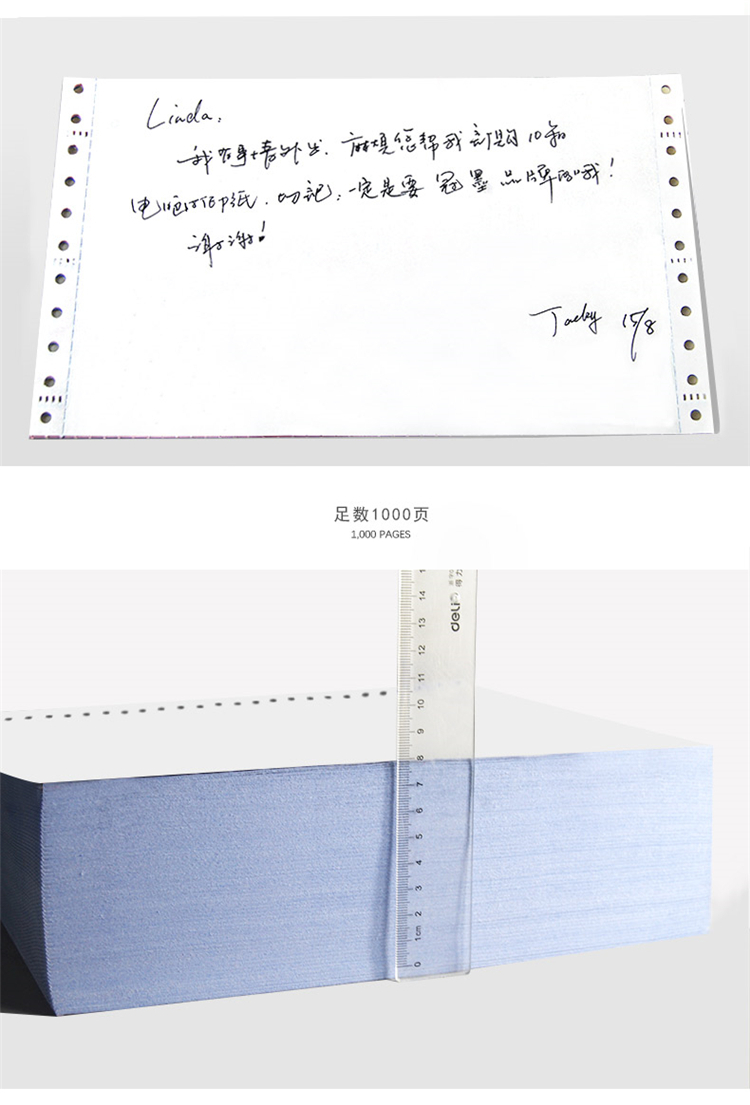 Linda,
我有事情外出，麻烦您帮我订购10箱
电脑打印纸，切记，一定是要冠墨品牌的哦！
谢谢！
Jacky 15/8
足数1000页
1,000 PAGES
deli 得力
14
13
12
11
10
9
8
7
6
5
4
3
2
1cm
0